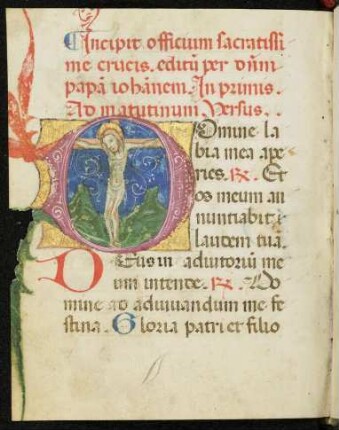 Incipit officium sacratissi
me crucis. editũ per dñm
papã iohãnem. In primis.
Ad matutinum. Versus.
Domine la
bia mea ape
ries. ℟. Et
os meum an
nuntiabit
laudem tua.
Deus in adiutoriũ me
um intende. ℟. Do
mine ad adiuuandum me fe
stina. Gloria patri et filio